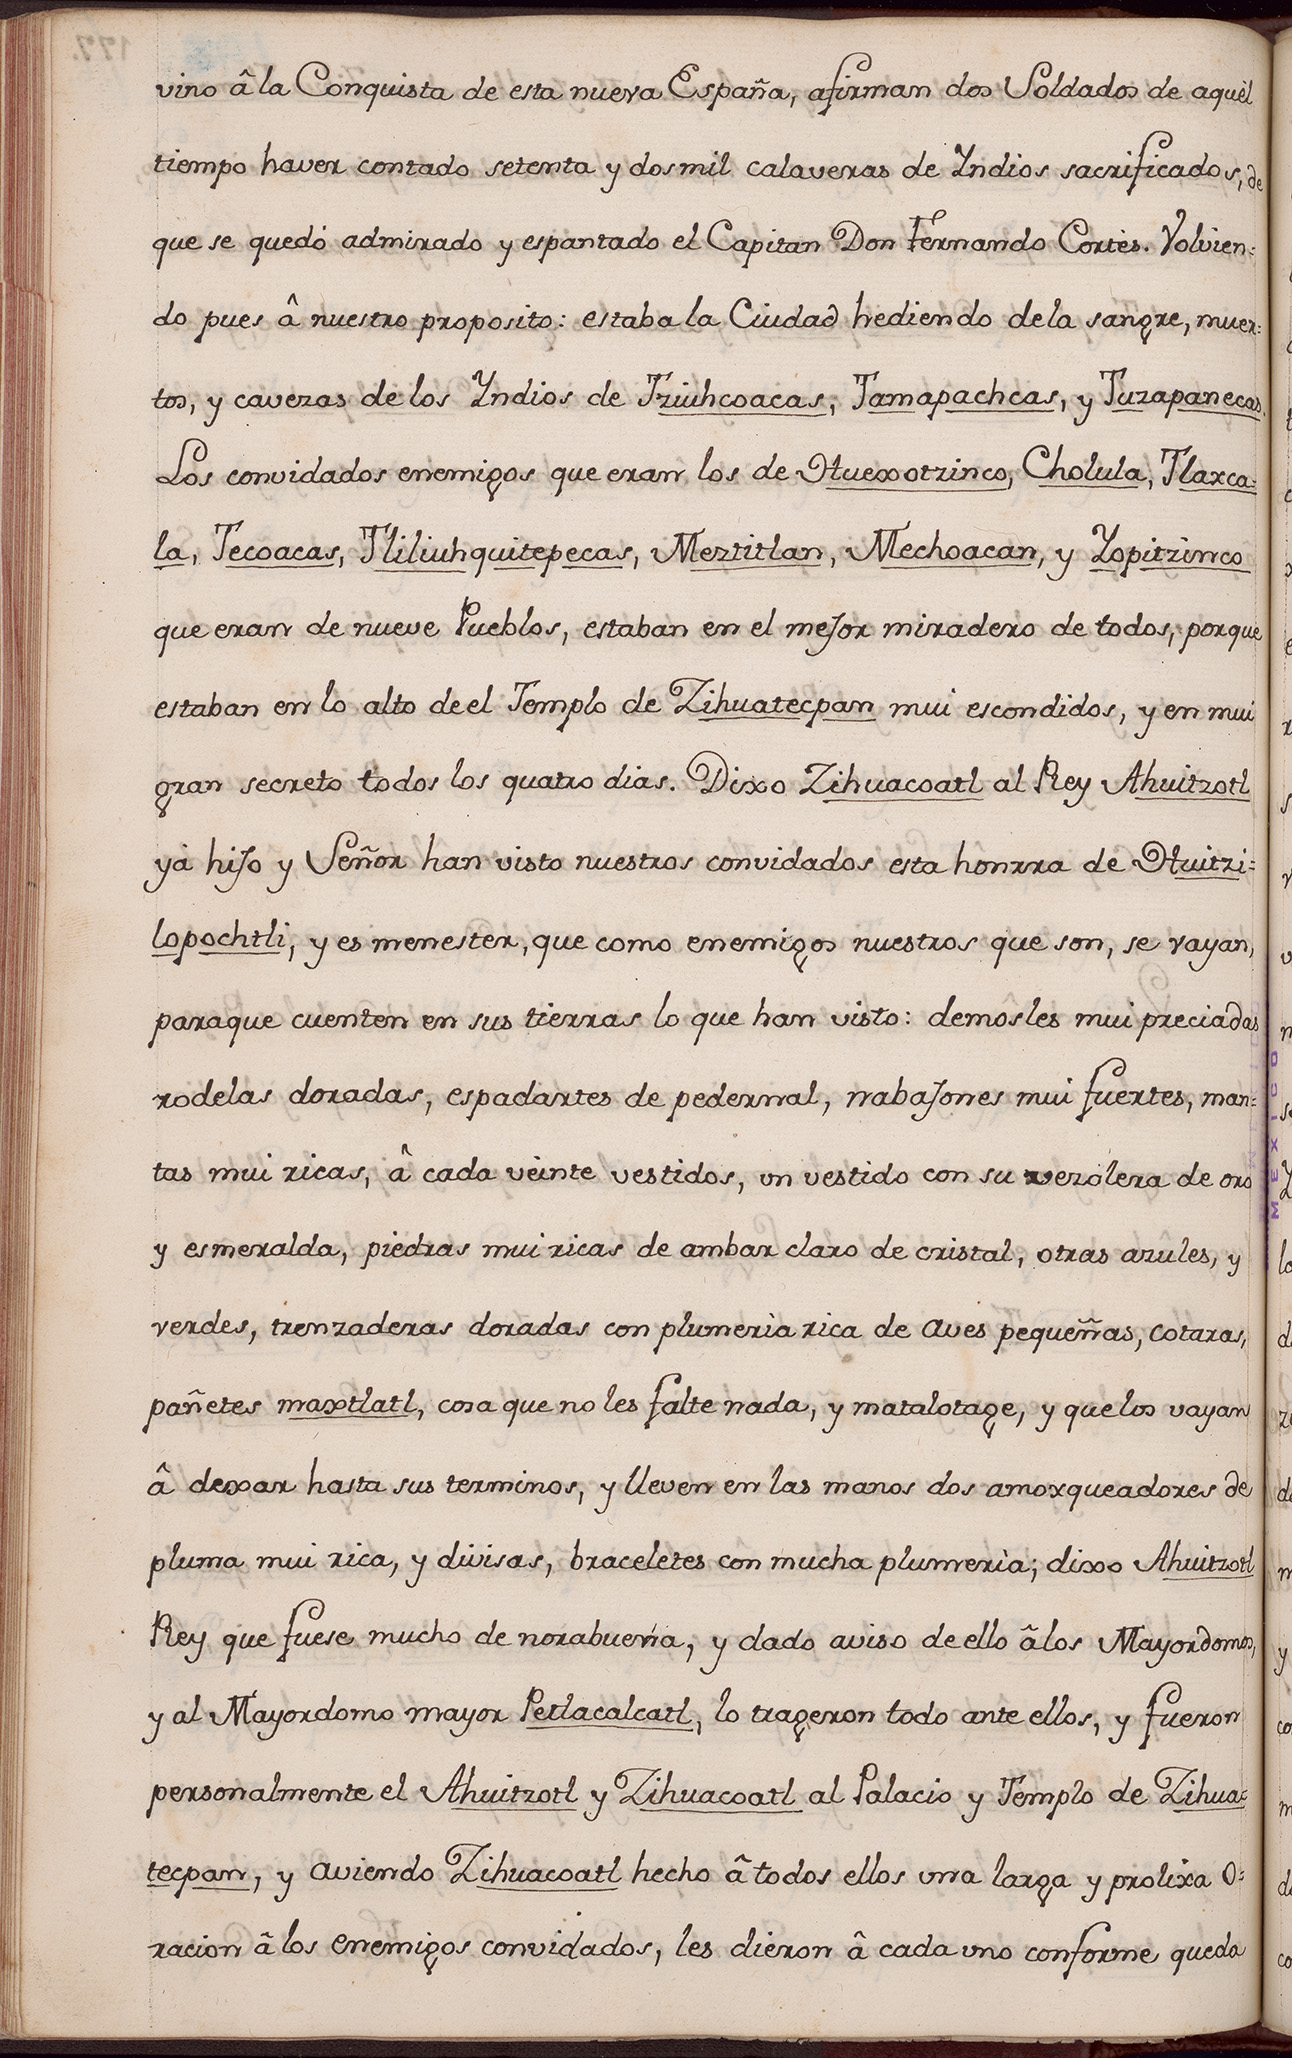 vino â la Conquista de esta nueva España, afirman dos Soldados de aquèl
tiempo haver contado setenta y dos mil calaveras de Yndios sacrificados, de
que se quedò admirado y espantado el Capitan Don Fernando Cortès. Volvien=
do pues â nuestro proposito: estaba la Ciudad hediendo dela sangre, muer=
tos, y cavezas de los Yndios de Tziuhcoacas, Tamapachcas, y Tuzapanecas.
Los convidados enemigos que eran los de Huexotzinco, Cholula, Tlaxca=
la, Tecoacas, Tliliuhquitepecas, Meztitlan, Mechoacan, y Yopitzinco
que eran de nueve Pueblos, estaban en el mejor miradero de todos, porque
estaban en lo alto de el Templo de Zihuatecpan mui escondidos, y en mui
gran secreto todos los quatro dias. Dixo Zihuacoatl al Rey Ahuitzotl
yà hijo y Señor han visto nuestros convidados esta honrra de Huitzi=
lopochtli, y es menester, que como enemigos nuestros que son, se vayan,
paraque cuenten en sus tierras lo que han visto: demôsles mui preciadas
rodelas doradas, espadartes de pedernal, nabajones mui fuertes, man=
tas mui ricas, â cada veinte vestidos, un vestido con su vezolera de oro
y esmeralda, piedras mui ricas de ambar claro de cristal, otras azules, y
verdes, trenzaderas doradas con plumerìa rica de aves pequeñas, cotaras,
pañetes maxtlatl, cosa que no les falte nada, y matalotage, y que los vayan
â dexar hasta sus terminos, y lleven en las manos dos amoxqueadores de
pluma mui rica, y divisas, braceletes con mucha plumerìa; dixo Ahuitzotl
Rey que fuese mucho de norabuena, y dado aviso de ello â los Mayordomos,
y al Mayordomo mayor Petlacalcatl, lo trageron todo ante ellos, y fueron
personalmente el Ahuitzotl y Zihuacoatl al Palacio y Templo de Zihua=
tecpan, y aviendo Zihuacoatl hecho â todos ellos una larga y prolixa O=
racion â los enemigos convidados, les dieron â cada uno conforme queda
MEXICO